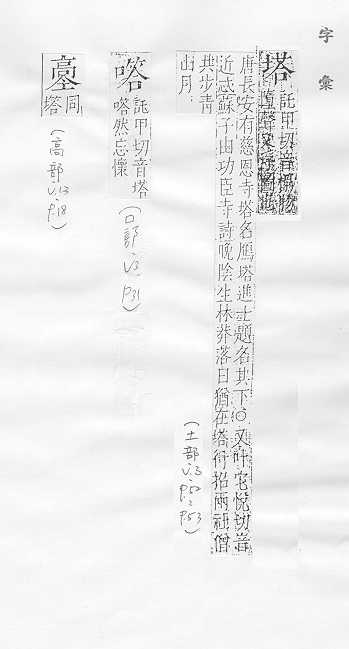 字彙
塔 託甲切音榻物
唐長安有慈恩寺塔名鴈塔進士題名其下○又叶它悅切音
近忒蘇子由功臣寺詩晚陰生林莽落日猶在塔行招兩社僧
共步青山月
(土部 V.3 P.52-P.53)
嗒 託甲切音塔嗒然忘懷
(口部 V.3 P.31)
同塔
(高部 V.13 P.18)